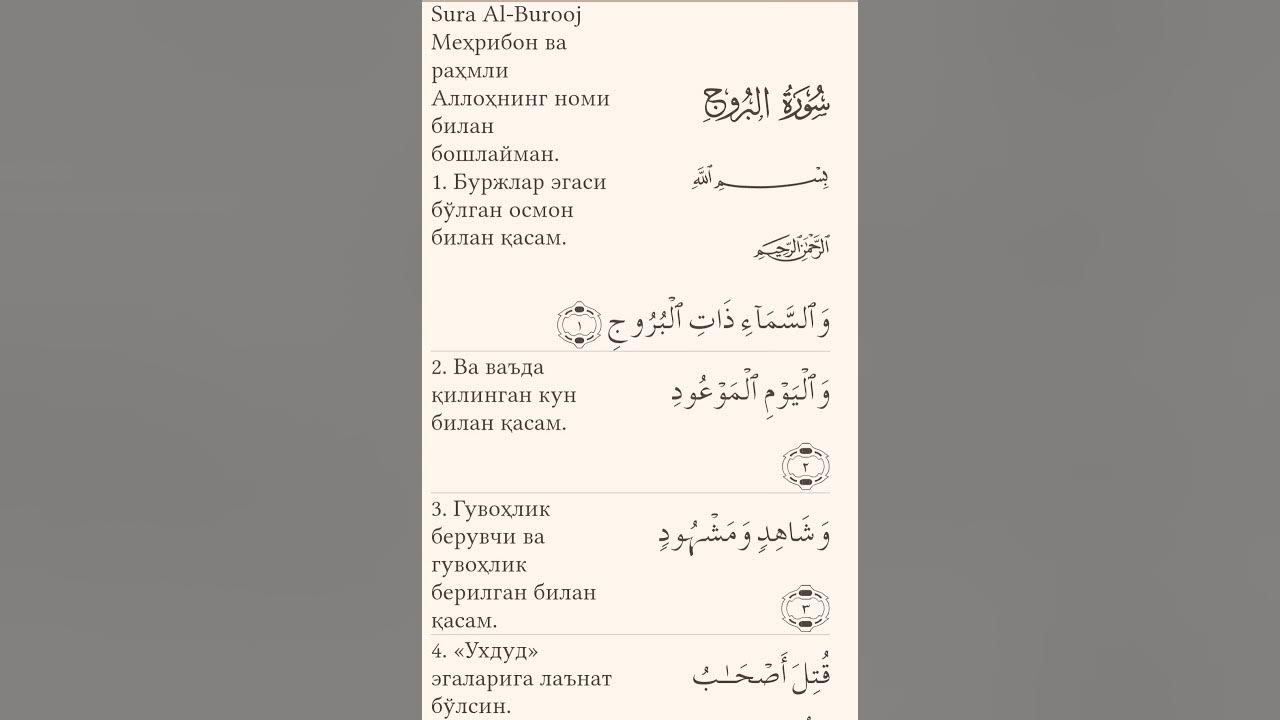 Sura Al-Burooj
Меҳрибон ва
раҳмли
Аллоҳнинг номи
билан
бошлайман.
سُورَةُ البُرُوجِ
بِسْمِ ٱللَّهِ
ٱلرَّحْمَٰنِ ٱلرَّحِيمِ
1. Буржлар эгаси
бўлган осмон
билан қасам.
وَٱلسَّمَآءِ ذَاتِ ٱلْبُرُوجِ ١
2. Ва ваъда
қилинган кун
билан қасам.
وَٱلْيَوْمِ ٱلْمَوْعُودِ
٢
3. Гувоҳлик
берувчи ва
гувоҳлик
берилган билан
қасам.
وَشَاهِدٍ وَمَشْهُودٍ
٣
4. «Ухдуд»
эгаларига лаънат
бўлсин.
قُتِلَ أَصْحَـٰبُ